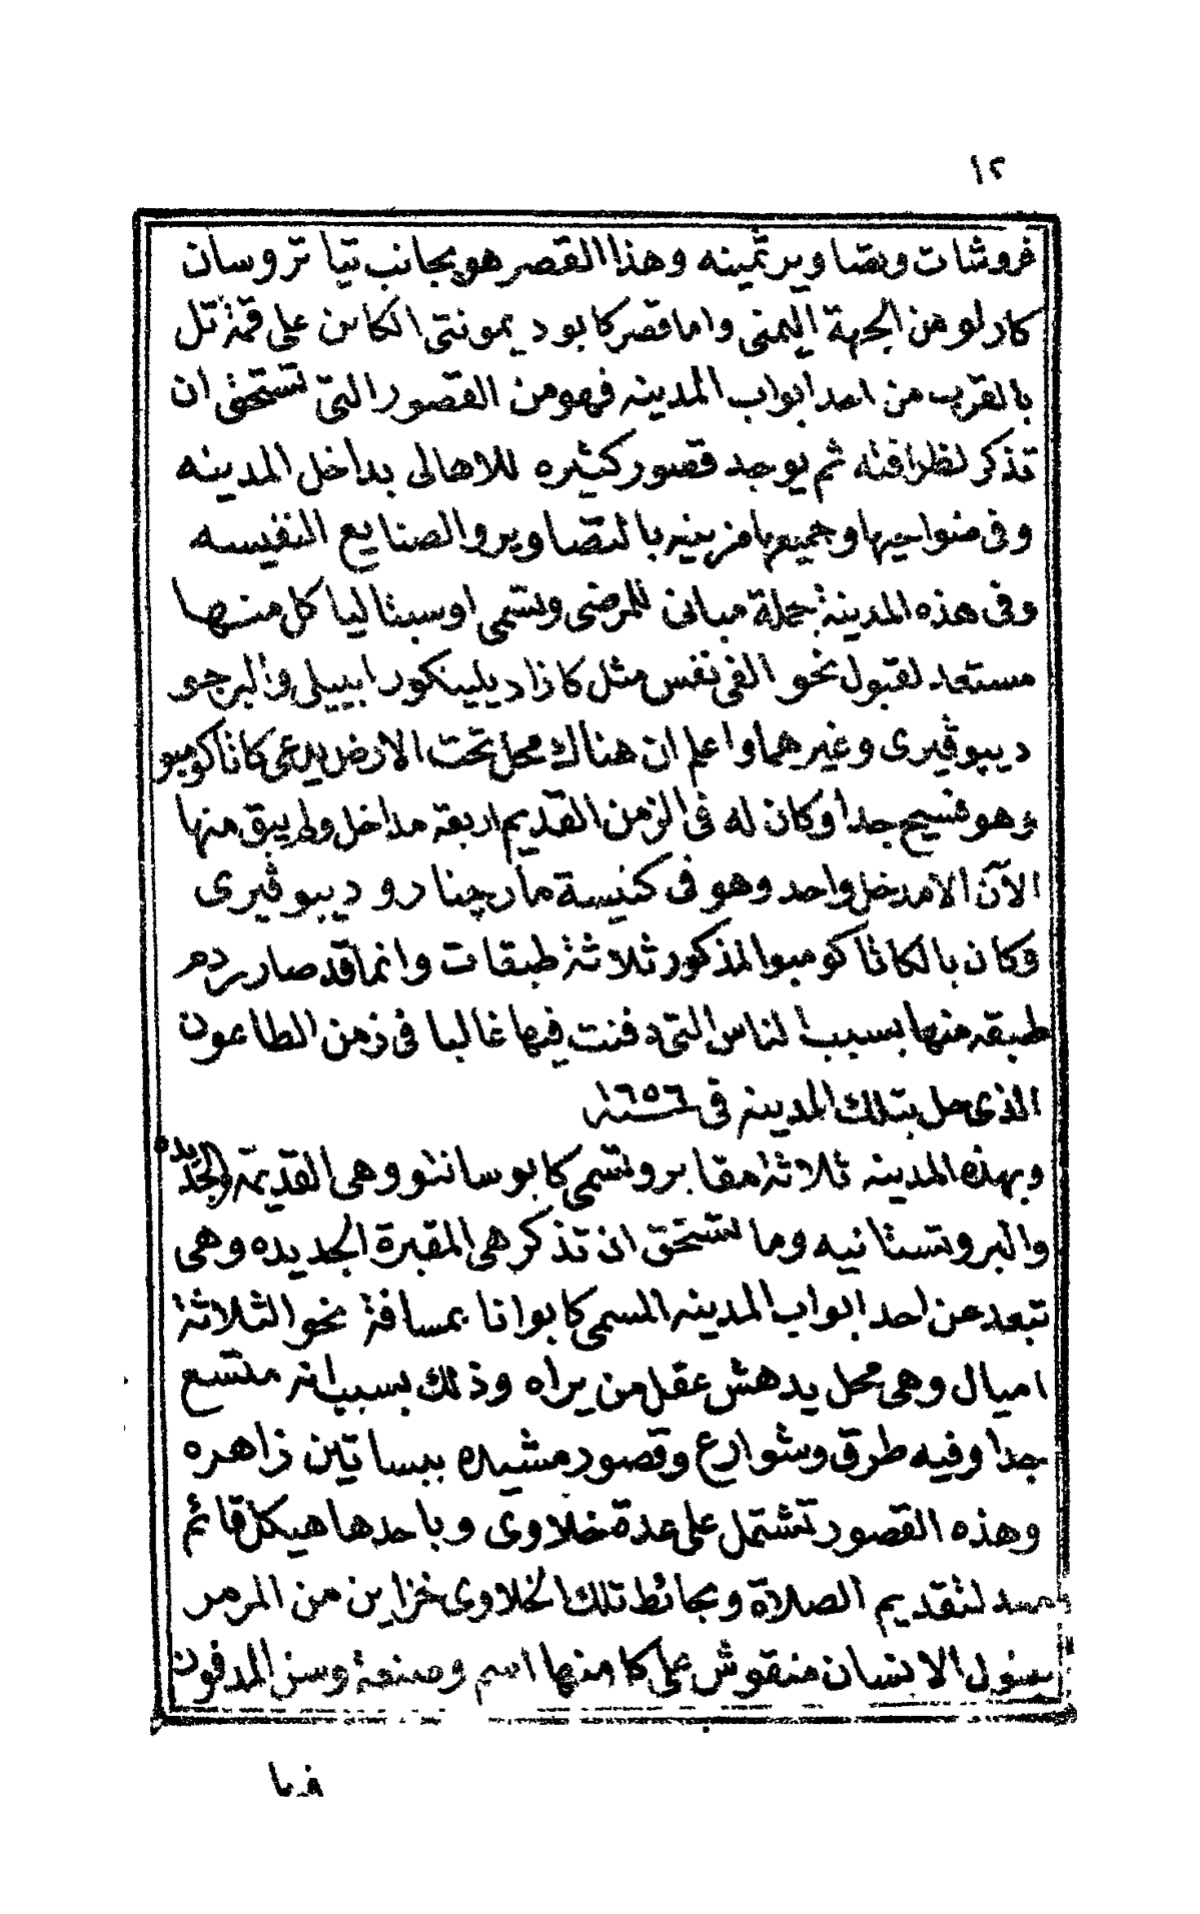 ١٢
فروشات وبتصاوير ثمينه وهذا القصر هو بجانب تيا تروسان
كارلو من الجهة اليمنى واما قصر كابوديمونتى الكائن على قمة تل
بالقرب من احد ابواب المدينه فهو من القصور التى تستحق ان
تذكر لظرافته ثم يوجد قصور كثيره للاهالى بداخل المدينه
وفى ضواحيها وجميعها مزينه بالتصاوير والصنايع النفيسه
وفى هذه المدينة جملة مبانى للمرضى وتسمى اوسبتاليا كل منها
مستعد لقبول نحو الفى نفس مثل كازاديلينكورابيلى والبرجو
ديپوڤيرى وغيرهما واعلم ان هناك محل تحت الارض يدعى كاتاكومبو
وهو فسيح جدا وكان له فى الزمن القديم اربعة مداخل ولم يبق منها
الآن الا مدخل واحد وهو فى كنيسة مارچنارو ديپوڤيرى
وكان بالكاتاكومبو المذكور ثلاثة طبقات وانما قد صار ردم
طبقه منها بسبب الناس التى دفنت فيها غالبا فى زمن الطاعون
الذى حل بتلك المدينه فى سنة ١٦٥٦
وبهذه المدينه ثلاثة مقابر وتسمى كابوسانتو وهى القديمة والجديده
والبروتستانيه وما تستحق ان تذكر هى المقبرة الجديده وهى
تبعد عن احد ابواب المدينه المسمى كابوانا بمسافة نحو الثلاثة
اميال وهى محل يدهش عقل من يراه وذلك بسبب انه متسع
جدا وفيه طرق وشوارع وقصور مشيده ببساتين زاهره
وهذه القصور تشتمل على عدة خلاوى وباحدها هيكل قائم
معد لتقديم الصلاة وبحائط تلك الخلاوى خزاين من المرمر
بطول الانسان منقوش على كل منها اسم وصنعة وسن المدفون